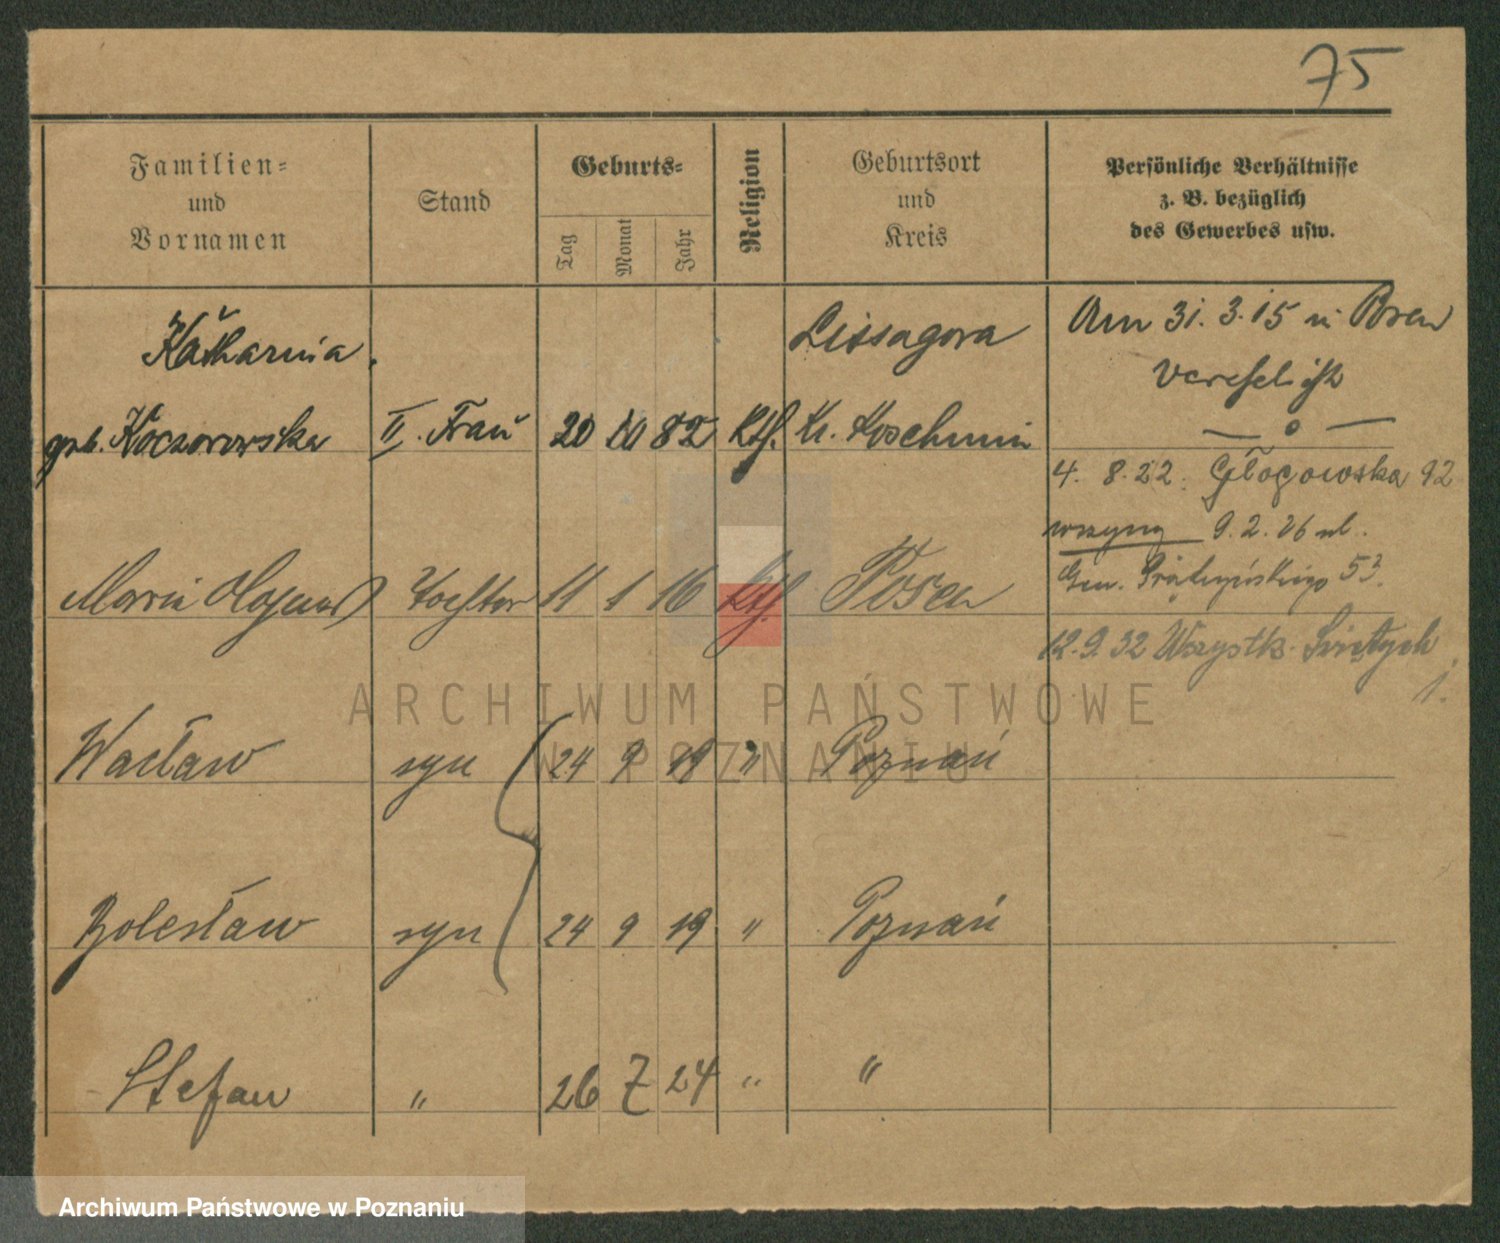 75
Familien=
und
Vornamen
Stand
Geburts=
Tag
Monat
Jahr
Religion
Geburtsort
und
Kreis
Persönliche Verhältnisse
z. B. bezüglich
des Gewerbes usw.
Katharina
geb. Koczorowska II. Frau 20 10 82 Kth. Lissagora
Kr. Koschmin
Am 31. 3. 15 in Posen
verehelicht
— o —
4. 8. 22. Głogowska 92
9. 2. 26 ul.
Gen. Prądzyńskiego 53.
Maria Tochter 11 1 16 Kth. Posen
12. 9. 32 Wszystk. Świętych
1.
Wacław syn 24 9 19 " Poznań
Bolesław syn 24 9 19 " Poznań
Stefan " 26 7 24 " "
ARCHIWUM PAŃSTWOWE
W POZNANIU
Archiwum Państwowe w Poznaniu